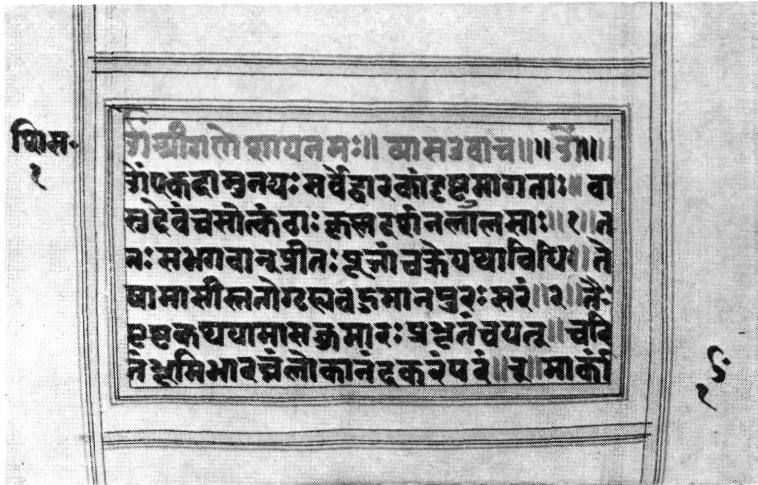 शिस॰
१
ॐश्रीगणेशायनमः॥ व्यासउवाच॥॥ ॐ॥
ॐएकदामुनयः सर्वेद्वारकांद्रष्टुमागताः॥ वा
सुदेवंचसोत्कंठाः कृष्णदर्शनलालसाः॥१॥त
तः सभगवान्प्रीतः पूजांचक्रेयथाविधि॥ते
षामाशीस्ततोगृह्यबहुमानपुरः सरं॥२॥तैः
पृष्टकथयामासकुमारः प्रभृतंचयत्॥चरि
तंभूमिभारघ्नंलोकानंदकरंपरं॥३॥मार्कं
१